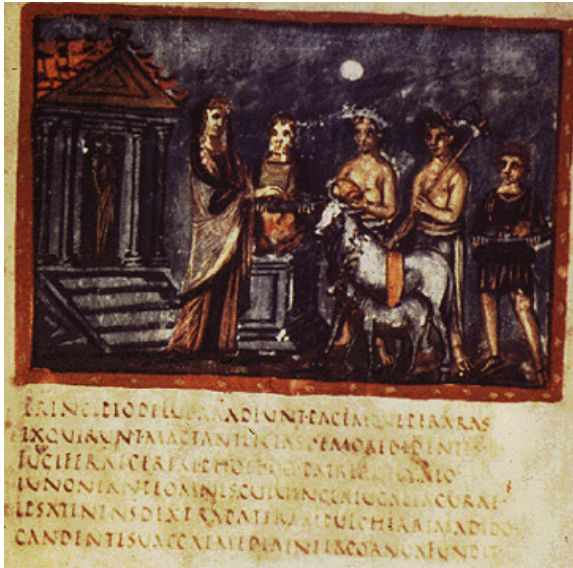 PRINCIPIODELUBRAADEUNTPACEMQUEPERARAS
EXQUIRUNTMACTANTLECTASDEMOREBIDENTIS
CERERI
IUNONIANTEOMNISCUIVINCLAIUGALIACURAE
TENENSDEXTRAPATERAMPULCHERRIMADIDO
CANDENTISUACCAEMEDIAINTERCORNUAFUNDIT